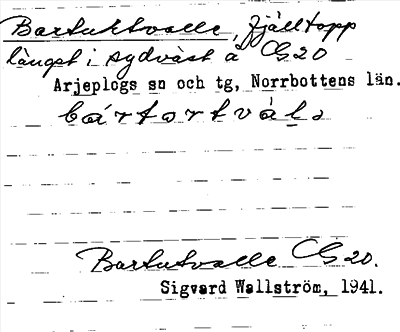 Bartuktvalle, fjälltopp
längst i sydväst å CG 20
Arjeplogs sn och tg, Norrbottens län.
bártortvále
Bartutvalle CG 20.
Sigvard Wallström, 1941.